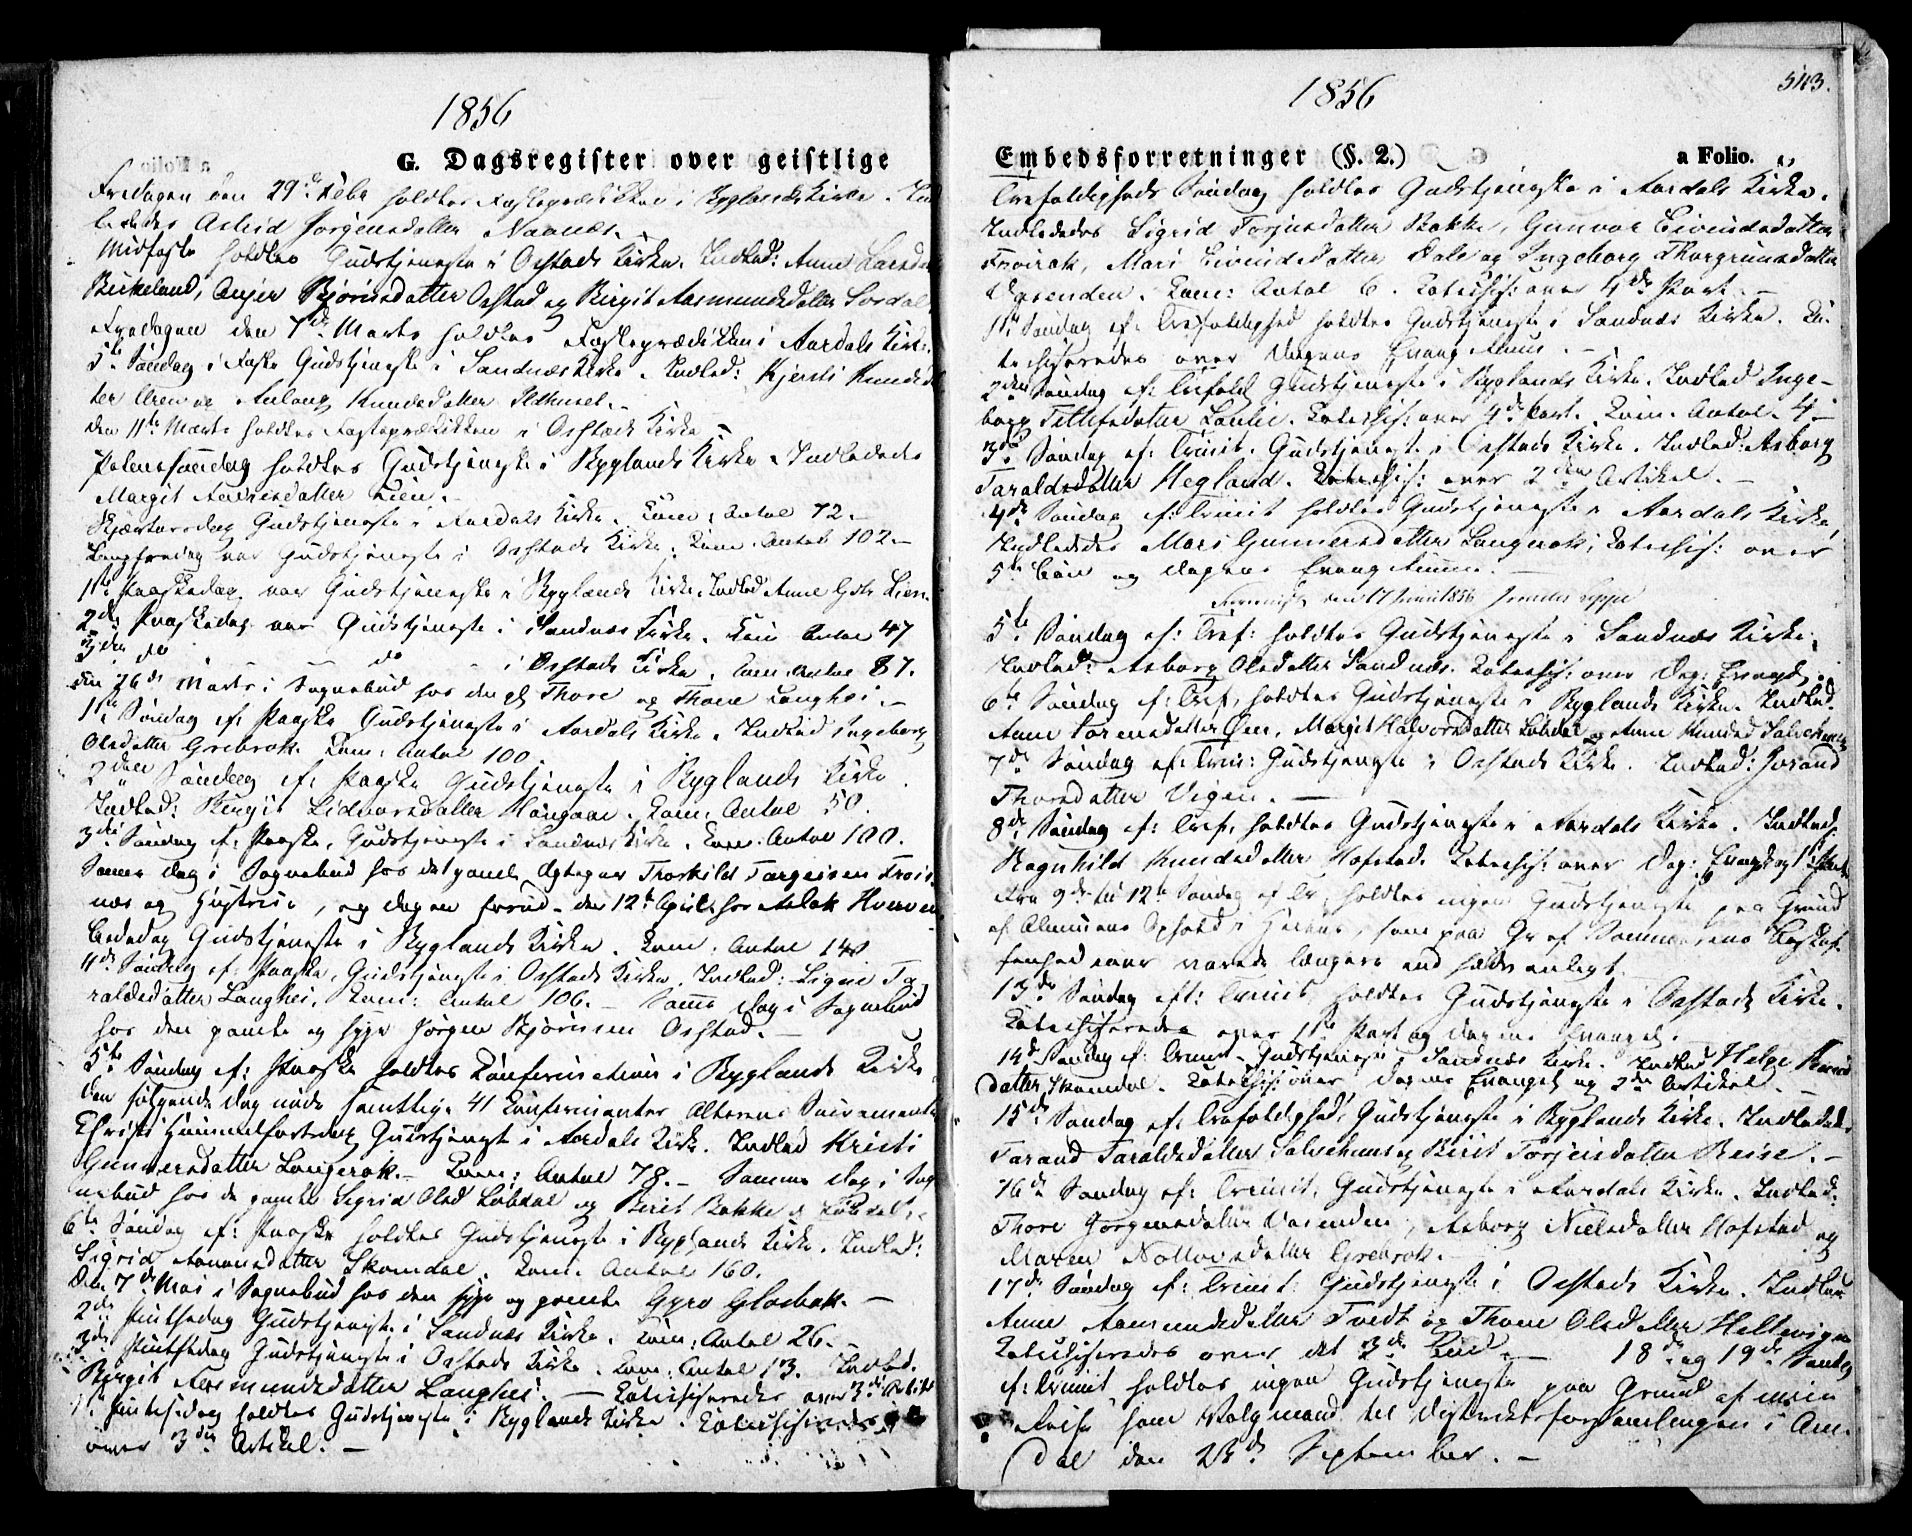 1856
G. Dagsregister over geistlige
Fredagen den 29de Febr holdtes Fasteprædiken i Byglands Kirke. Ind
ledes Astrid Jørgensdatter Naanes.
Midfaste holdtes Gudstjeneste i Ostads Kirke. Indled: Anne Larsda
Birkeland, Anjer Bjørnsdatter Ostad og Birgit Aasmundsdatter Lordal
Fredagen den 7de Marts holdtes Fasteprædiken i Aardals Kirke.
5te Søndag i Faste Gudstjeneste i Sandnæs Kirke. Indled: Kjersti Knudsd
ter Oren og Aslaug Knudsdatter Ildhuset.
den 11te Marts holdtes Fasteprædiken i Ostads Kirke
Palmesøndag holdtes Gudstjeneste i Byglands Kirke. Indledes
Margit Andersdatter Lien.
Skjærtorsdag Gudstjeneste i Aardals Kirke. Com: Antal 72.
Langfredag var Gudstjeneste i Ostads Kirke. Com: Antal 102.
1ste Paaskedag var Gudstjeneste i Byglands Kirke. Indled Anne Lien.
2den Paaskedag var Gudstjeneste i Sandnæs Kirke. Com Antal 47
3die do do i Ostads Kirke. Com: Antal 87.
den 26de Marts i Sognebud hos den gl Thore og Thone Langhei.
1ste Søndag ef: Paaske Gudstjeneste i Aardals Kirke. Indled Ingeborg
Olsdatter Grebrok. Com: Antal 100.
2den Søndag ef: Paaske Gudstjeneste i Byglands Kirke
Indled: Birgit Lidvorsdatter Haugaae. Com: Antal 50.
3die Søndag ef: Paaske, Gudstjeneste i Sandnæs Kirke. Com: Antal 100.
Samme dag i Sognebud hos det gamle Ægtepar Thorkild Torgeisen Frois-
næs og Hustrue, og dagen forud den 12te April hos Aslak
Bededag Gudstjeneste i Byglands Kirke. Com. Antal 140
4de Søndag ef: Paaske, Gudstjeneste i Ostads Kirke. Indled: Signe Ta-
raldsdatter Langhei. Com: Antal 106. Samme dag i Sognebud
hos den gamle og syge Jørgen Bjørnsen Ostad.
5te Søndag ef: Paaske holdtes Confirmation i Byglands Kirke
den følgende dag nøde samtlige 41 Confirmanter Alterens Sacramente
Christi Himmelfartsdag Gudstjenest i Aardals Kirke. Indled Kristi
Gunnersdatter Langerok. Com: Antal 78. Samme dag i Sog
nebud hos de gamle Sigrid Olsd Lobdal og Berit Bakke
6te Søndag ef: Paaske holdtes Gudstjeneste i Byglands Kirke. Indled:
Sigrid Aanonsdatter Skomdal. Com. Antal 160.
Den 7de Mai i Sognebud hos den syge og gamle Gyro Glosbak.
2den Pintsedag Gudstjeneste i Sandnæs Kirke. Com: Antal 26.
3die Pintsedag Gudstjeneste i Ostads Kirke. Com: Antal 13. Indled.
Birgit Aasmundsdatter Langhei. Catechiseredes over 3die Artikl
1ste Pintsedag holdtes Gudstjeneste i Byglands Kirke. Catechiseredes
over 3die Artikel.
1856
543.
Embedsforretninger (§. 2.)
a Folio.
Trefoldigheds Søndag holdtes Gudstjeneste i Aardals Kirke.
Indledes Sigrid Torjusdatter Bakke, Gunvor Eivindsdatter
Froirak, Mari Eivindsdatter Dale og Ingeborg Thorgrimsdatter
Com: Antal 6. Catechis: over 4de Part.
1ste Søndag ef: Trefoldighed holdtes Gudstjeneste i Sandnæs Kirke. Ca-
techiseredes over dagens Evangelium.
2den Søndag ef: Trefold Gudstjeneste i Byglands Kirke. Indled Inge-
borg Tellefsdatter. Catechis: over 4de Part. Com. Antal 4
3die Søndag ef: Trinit. Gudstjeneste i Ostads Kirke. Indled: Asborg
Taraldsdatter Hegland. Catechis: over 2den Artikel.
4de Søndag ef: Trinit holdtes Gudstjeneste i Aardals Kirke,
Indledes Mari Gunnersdatter Langerok; Catechis: over
5te Bøn og dagens Evangelium.
den 17 Juni 1856
5te Søndag ef: Tref: holdtes Gudstjeneste i Sandnæs Kirke,
Indled: Asborg Olsdatter Sandnæs. Catechis: over Dag: Evangel.
6te Søndag ef: Tref, holdtes Gudstjeneste i Byglands Kirke. Indled.
Anne Torensdatter Øen, Margit Halvorsdatter Lobdal og Anne Knudsd
7de Søndag ef: Trin: Gudstjeneste i Ostads Kirke. Indled: Jorand
Thorsdatter Vigen.
8de Søndag ef: Tref, holdtes Gudstjeneste i Aardals Kirke. Indled.
Ragnhild Knudsdatter Hofstad. Catechis: over Dag: Evang og 1ste Part
Fra 9de til 12te Søndag ef Tr, holdtes ingen Gudstjeneste paa Grund
af Ophold i som paa Gr af
fenhed maa varede længere end
13de Søndag eft: Trinit holdtes Gudstjeneste i Ostads Kirke.
Catechiseredes over 11te Part og dagens Evangel.
14de Søndag ef: Trinit Gudstjeneste i Sandnæs Kirke. Indled Helge
datter Skomdal. Catechis: over dagens Evangel og 2den Artikel
15de Søndag ef: Trefoldighed, Gudstjeneste i Byglands Kirke. Indledes.
Tarand Taraldsdatter og Birit Torjusdatter Reise.
16de Søndag ef: Trinit, Gudstjeneste i Aardals Kirke. Indled:
Thore Jørgensdatter, Asborg Nielsdatter Hofstad og
Maren Grebrok.
17de Søndag ef: Trinit: Gudstjeneste i Ostads Kirke. Indled
Anne Aamundsdatter Tvedt og Thone Olsdatter Hellevigen
Catechiseredes over det 3die Bud. 18de og 19de Søndag
ef: Trinit holdtes ingen Gudstjeneste paa Grund af min
Reise som Valgmand til Distriktsforsamlingen i Aren-
dal den 23de September.